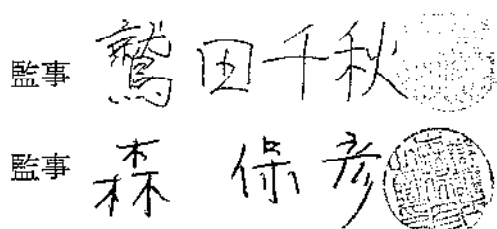 監事 鷲田千秋
監事 森 保彦